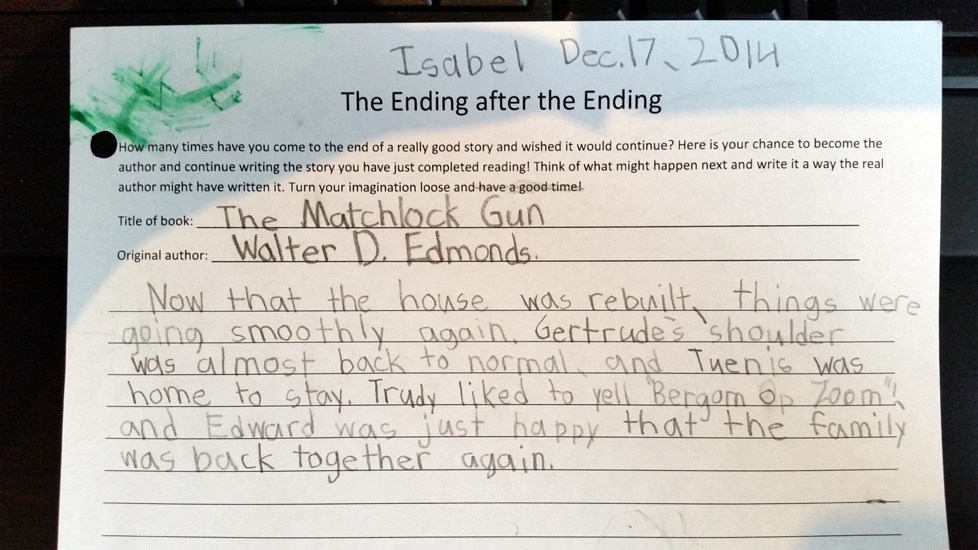 Isabel Dec.17, 2014
The Ending after the Ending
How many times have you come to the end of a really good story and wished it would continue? Here is your chance to become the
author and continue writing the story you have just completed reading! Think of what might happen next and write it a way the real
author might have written it. Turn your imagination loose and have a good time!
Title of book: The Matchlock Gun
Original author: Walter D. Edmonds.
Now that the house was rebuilt, things were
going smoothly again. Gertrude's shoulder
was almost back to normal, and Tuenis was
home to stay. Trudy liked to yell "Bergom Op Zoom"!,
and Edward was just happy that the family
was back together again.